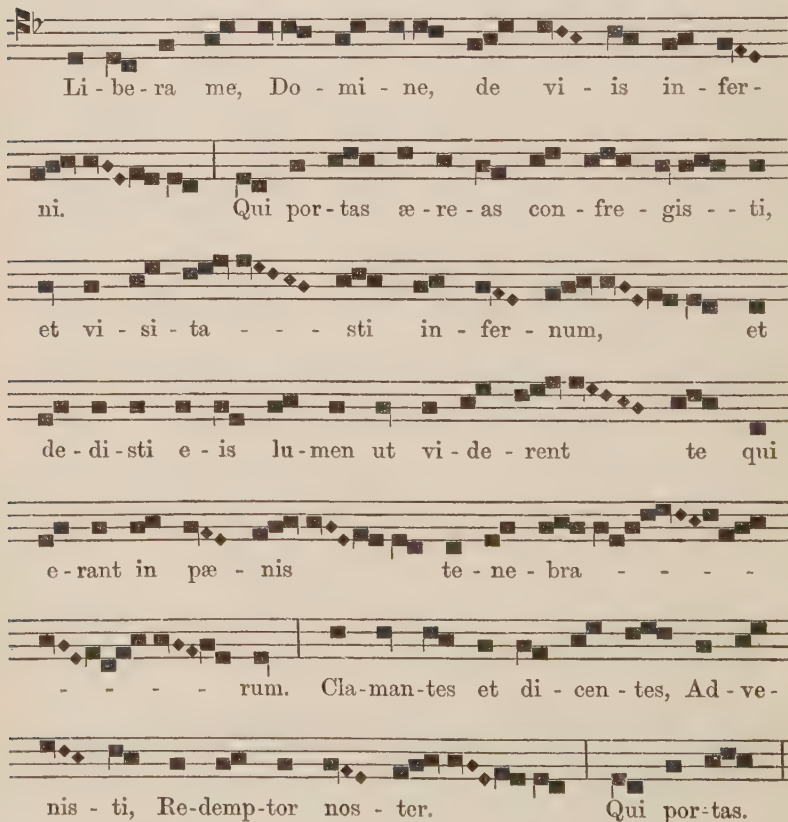 Li - be - ra me, Do - mi - ne, de vi - is in - fer-
ni. Qui por - tas æ - re - as con - fre - gis - - ti,
et vi - si - ta - - - sti in - fer - num, et
de - di - sti e - is lu - men ut vi - de - rent te qui
e - rant in pæ - nis te - ne - bra - - - -
- - - - rum. Cla - man - tes et di - cen - tes, Ad - ve-
nis - ti, Re - demp - tor nos - ter. Qui por - tas.